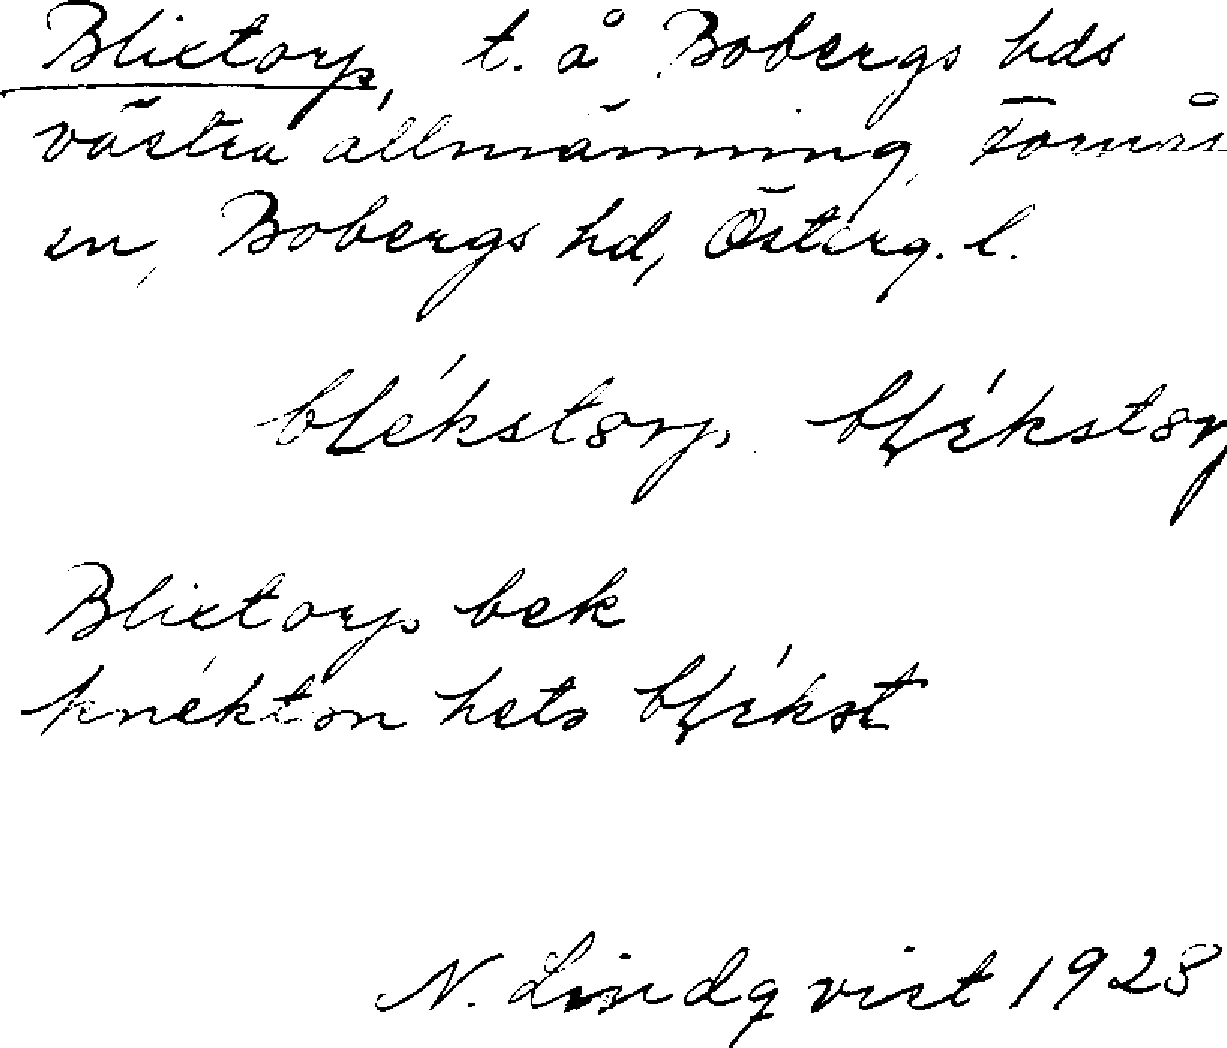 Blixtorp, t. å Bobergs hds
västra allmänning, Fornås
sn, Bobergs hd, Österg. l.
blékstorp. blékstorp
Blixtorp bek
knéktən hets blékst
N. Lindqvist 1928